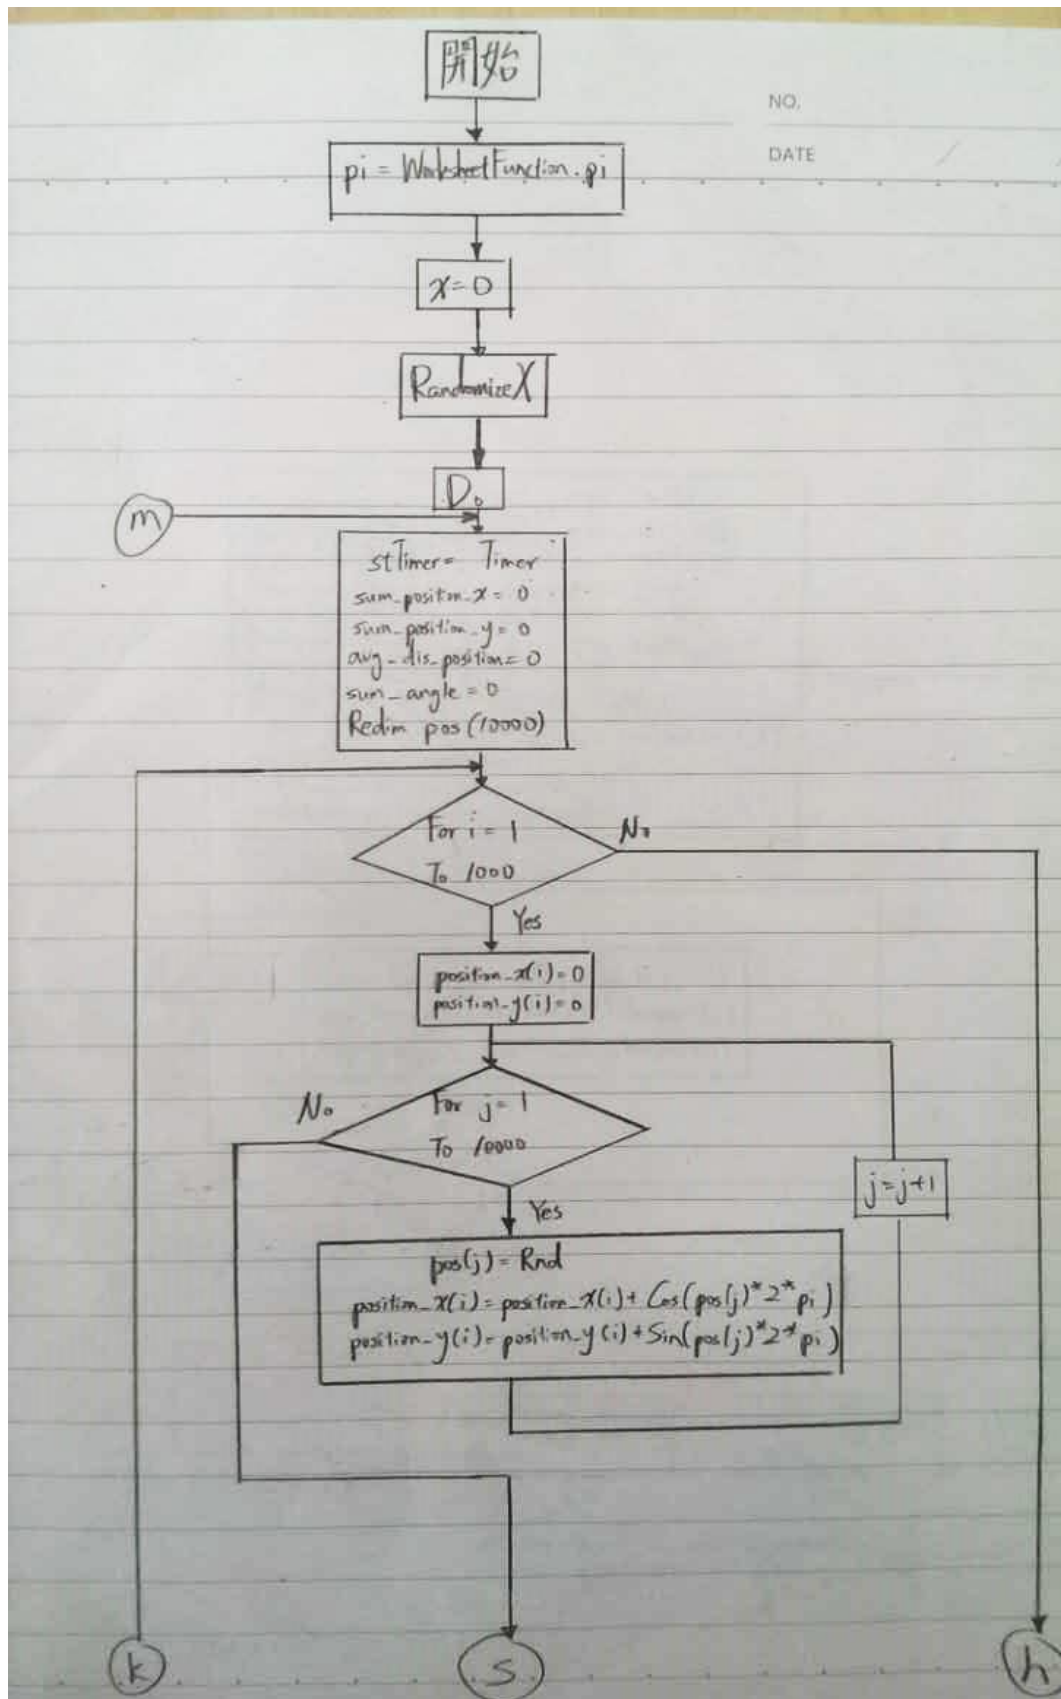 開始
NO.
DATE
pi = WorksheetFunction.pi
x=0
Randomize X
Do
m
stTimer = Timer
sum_positon_x = 0
sum_position_y = 0
avg_dis_position = 0
sum_angle = 0
Redim pos(10000)
For i = 1
To 1000
No
Yes
position_x(i)=0
position_y(i)=0
For j=1
To 10000
No
j=j+1
Yes
pos(j) = Rnd
position_x(i)=position_x(i)+Cos(pos(j)*2*pi)
position_y(i)=position_y(i)+Sin(pos(j)*2*pi)
k
s
h